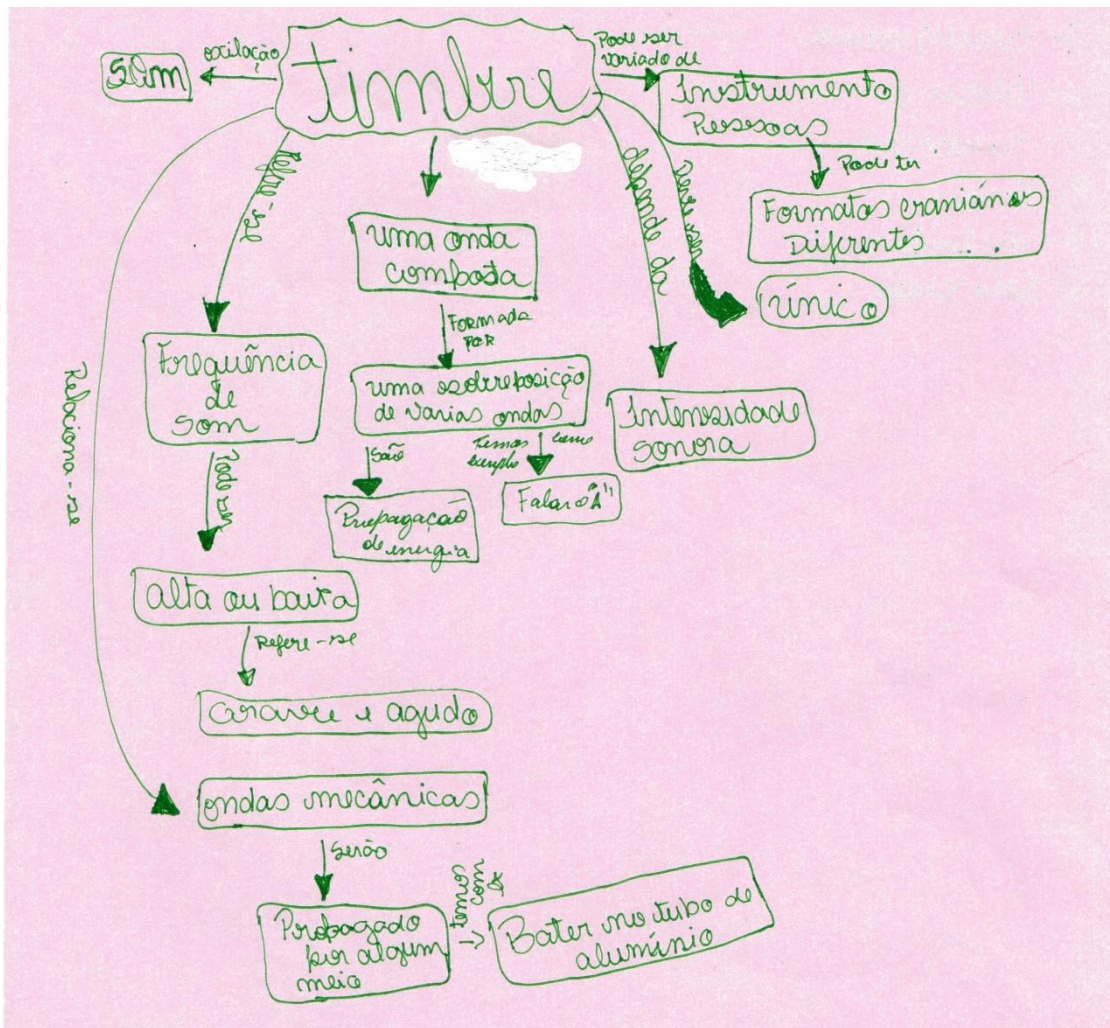 timbre
oscilação
som
Pode ser
variado de
Instrumento
Pessoas
Pode ter
Formatos craniános
Diferentes
Deve ser
único
depende da
Intensidade
sonora
uma onda
composta
Formada
por
uma sobreposição
de varias ondas
são
Propagação
de energia
temos como
exemplo
Falar o "A"
Refre-se
Frequência
de
som
Pode ser
alta ou baixa
Refere-se
Grave e agudo
Relaciona-se
ondas mecânicas
serão
Propagado
por algum
meio
temos
com
Bater no tubo de
alumínio